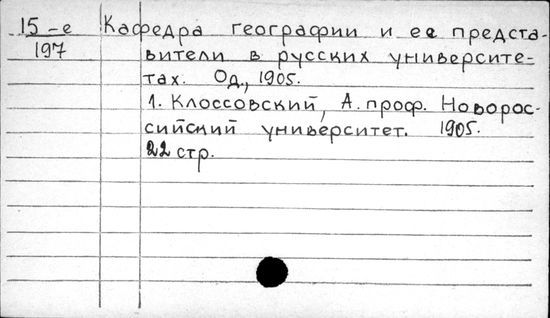 15-е Кафедра географии и ее предста-
197 вители в русских университе-
тах. Од., 1905.
1. Клоссовский, А. проф. Новорос-
сийский университет. 1905.
22 стр.